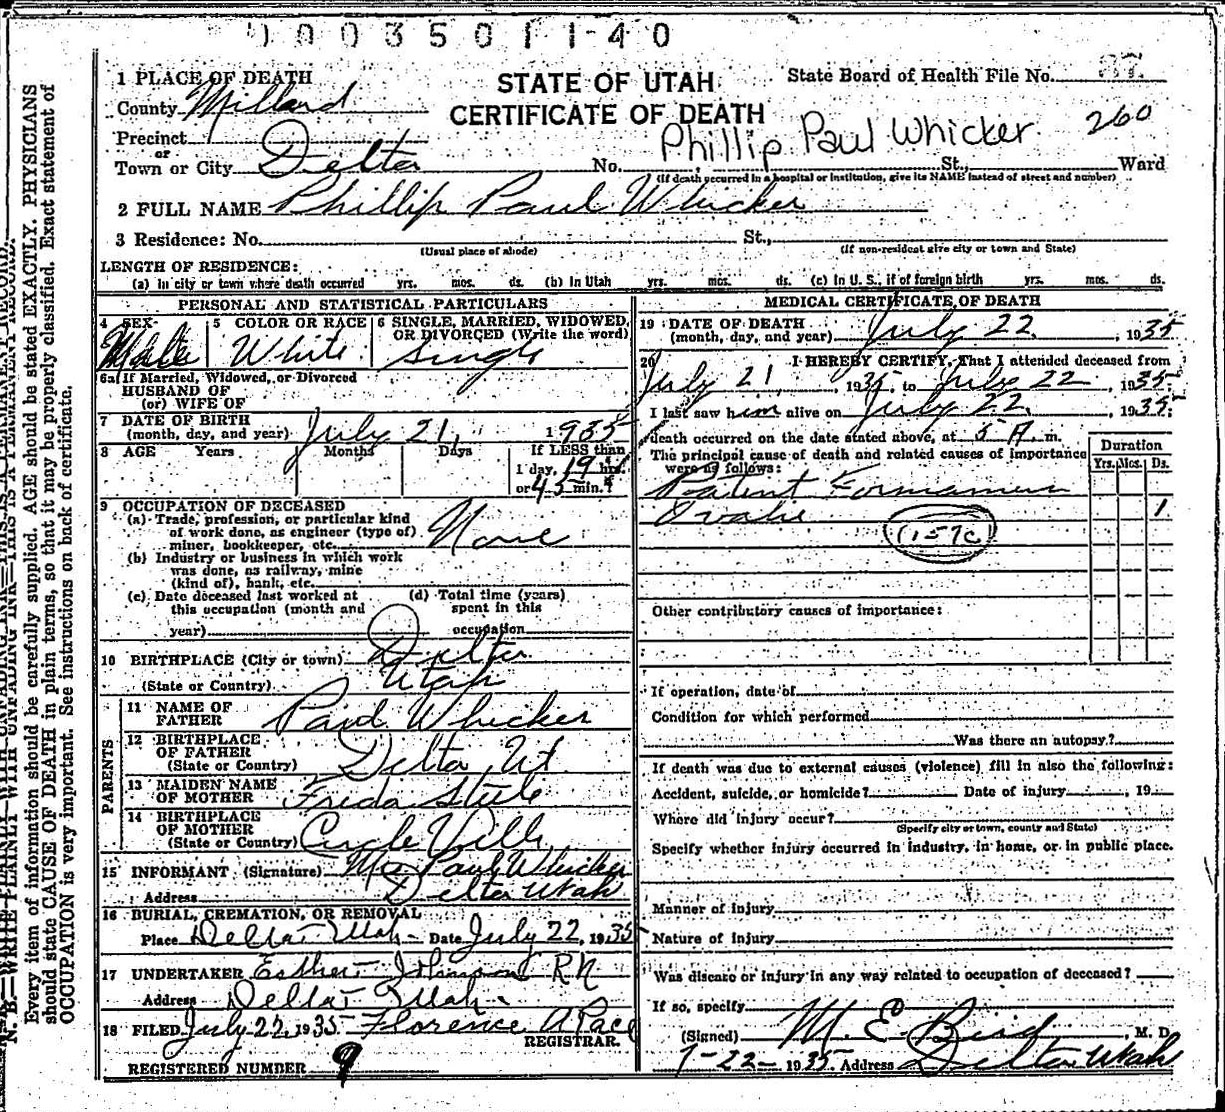 1003501140
1 PLACE OF DEATH
STATE OF UTAH
State Board of Health File No. 87
County Millard
CERTIFICATE OF DEATH
260
Precinct
Phillip Paul Whicker
or
Town or City Delta No. St., Ward
(If death occurred in a hospital or institution, give its NAME instead of street and number)
2 FULL NAME Phillip Paul Whicker
3 Residence: No. St.,
(Usual place of abode) (If non-resident give city or town and State)
LENGTH OF RESIDENCE:
(a) In city or town where death occurred yrs. mos. ds. (b) In Utah yrs. mos. ds. (c) In U. S., if of foreign birth yrs. mos. ds.
PERSONAL AND STATISTICAL PARTICULARS
4 SEX Male
5 COLOR OR RACE White
6 SINGLE, MARRIED, WIDOWED,
OR DIVORCED (Write the word)
Single
6a If Married, Widowed, or Divorced
HUSBAND OF
(or) WIFE OF
7 DATE OF BIRTH
(month, day, and year) July 21, 1935
8 AGE Years Months Days If LESS than
1 day, 19 hrs.
or 45 min.
9 OCCUPATION OF DECEASED
(a) Trade, profession, or particular kind
of work done, as engineer (type of)
miner, bookkeeper, etc. None
(b) Industry or business in which work
was done, as railway, mine
(kind of), bank, etc.
(c) Date deceased last worked at
this occupation (month and
year)
(d) Total time (years)
spent in this
occupation
10 BIRTHPLACE (City or town) Delta
(State or Country) Utah
PARENTS
11 NAME OF
FATHER Paul Whicker
12 BIRTHPLACE
OF FATHER
(State or Country) Delta, Ut.
13 MAIDEN NAME
OF MOTHER Freda Steele
14 BIRTHPLACE
OF MOTHER
(State or Country) Circle Ville
15 INFORMANT (Signature) Paul Whicker
Address Delta Utah
16 BURIAL, CREMATION, OR REMOVAL
Place Delta Utah Date July 22, 1935
17 UNDERTAKER Esther Johnson RN
Address Delta Utah
18 FILED July 22, 1935 Florence A Pace
REGISTRAR.
REGISTERED NUMBER 9
MEDICAL CERTIFICATE OF DEATH
19 DATE OF DEATH
(month, day, and year) July 22, 1935
20 I HEREBY CERTIFY, That I attended deceased from
July 21, 1935, to July 22, 1935
I last saw him alive on July 22, 1935;
death occurred on the date stated above, at 5 A. m.
The principal cause of death and related causes of importance
were as follows:
Duration
Yrs. Mos. Ds.
Patent Foramen
Ovale 1
157c
Other contributory causes of importance:
If operation, date of
Condition for which performed
Was there an autopsy?
If death was due to external causes (violence) fill in also the following:
Accident, suicide, or homicide? Date of injury , 19
Where did injury occur?
(Specify city or town, county and State)
Specify whether injury occurred in industry, in home, or in public place.
Manner of injury
Nature of injury
Was disease or injury in any way related to occupation of deceased?
If so, specify
(Signed) M. E. Bird M. D.
7-22- 1935 Address Delta Utah
N. B.—WRITE PLAINLY WITH UNFADING INK—THIS IS A PERMANENT RECORD.
Every item of information should be carefully supplied. AGE should be stated EXACTLY. PHYSICIANS
should state CAUSE OF DEATH in plain terms, so that it may be properly classified. Exact statement of
OCCUPATION is very important. See instructions on back of certificate.